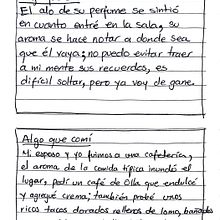 El alo de su perfume se sintió
en cuanto entré en la sala, su
aroma se hace notar a donde sea
que él vaya; no puedo evitar traer
a mi mente sus recuerdos, es
difícil soltar, pero ya voy de gane.
Algo que comí
Mi esposo y yo fuimos a una cafetería,
el aroma de la comida típica inundó el
lugar, pedí un café de olla que endulcé
y agregué crema; también probé unos
ricos tacos dorados rellenos de lomo, bañados